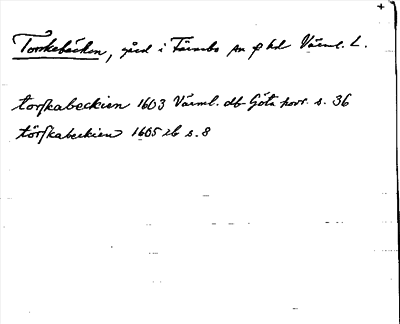 +
Torskebäcken, gård i Färnebo sn o hd Värml. L.
torskabeckien 1603 Värml. db Göta hovr. s. 36
törskabeckien 1605 ib s. 8